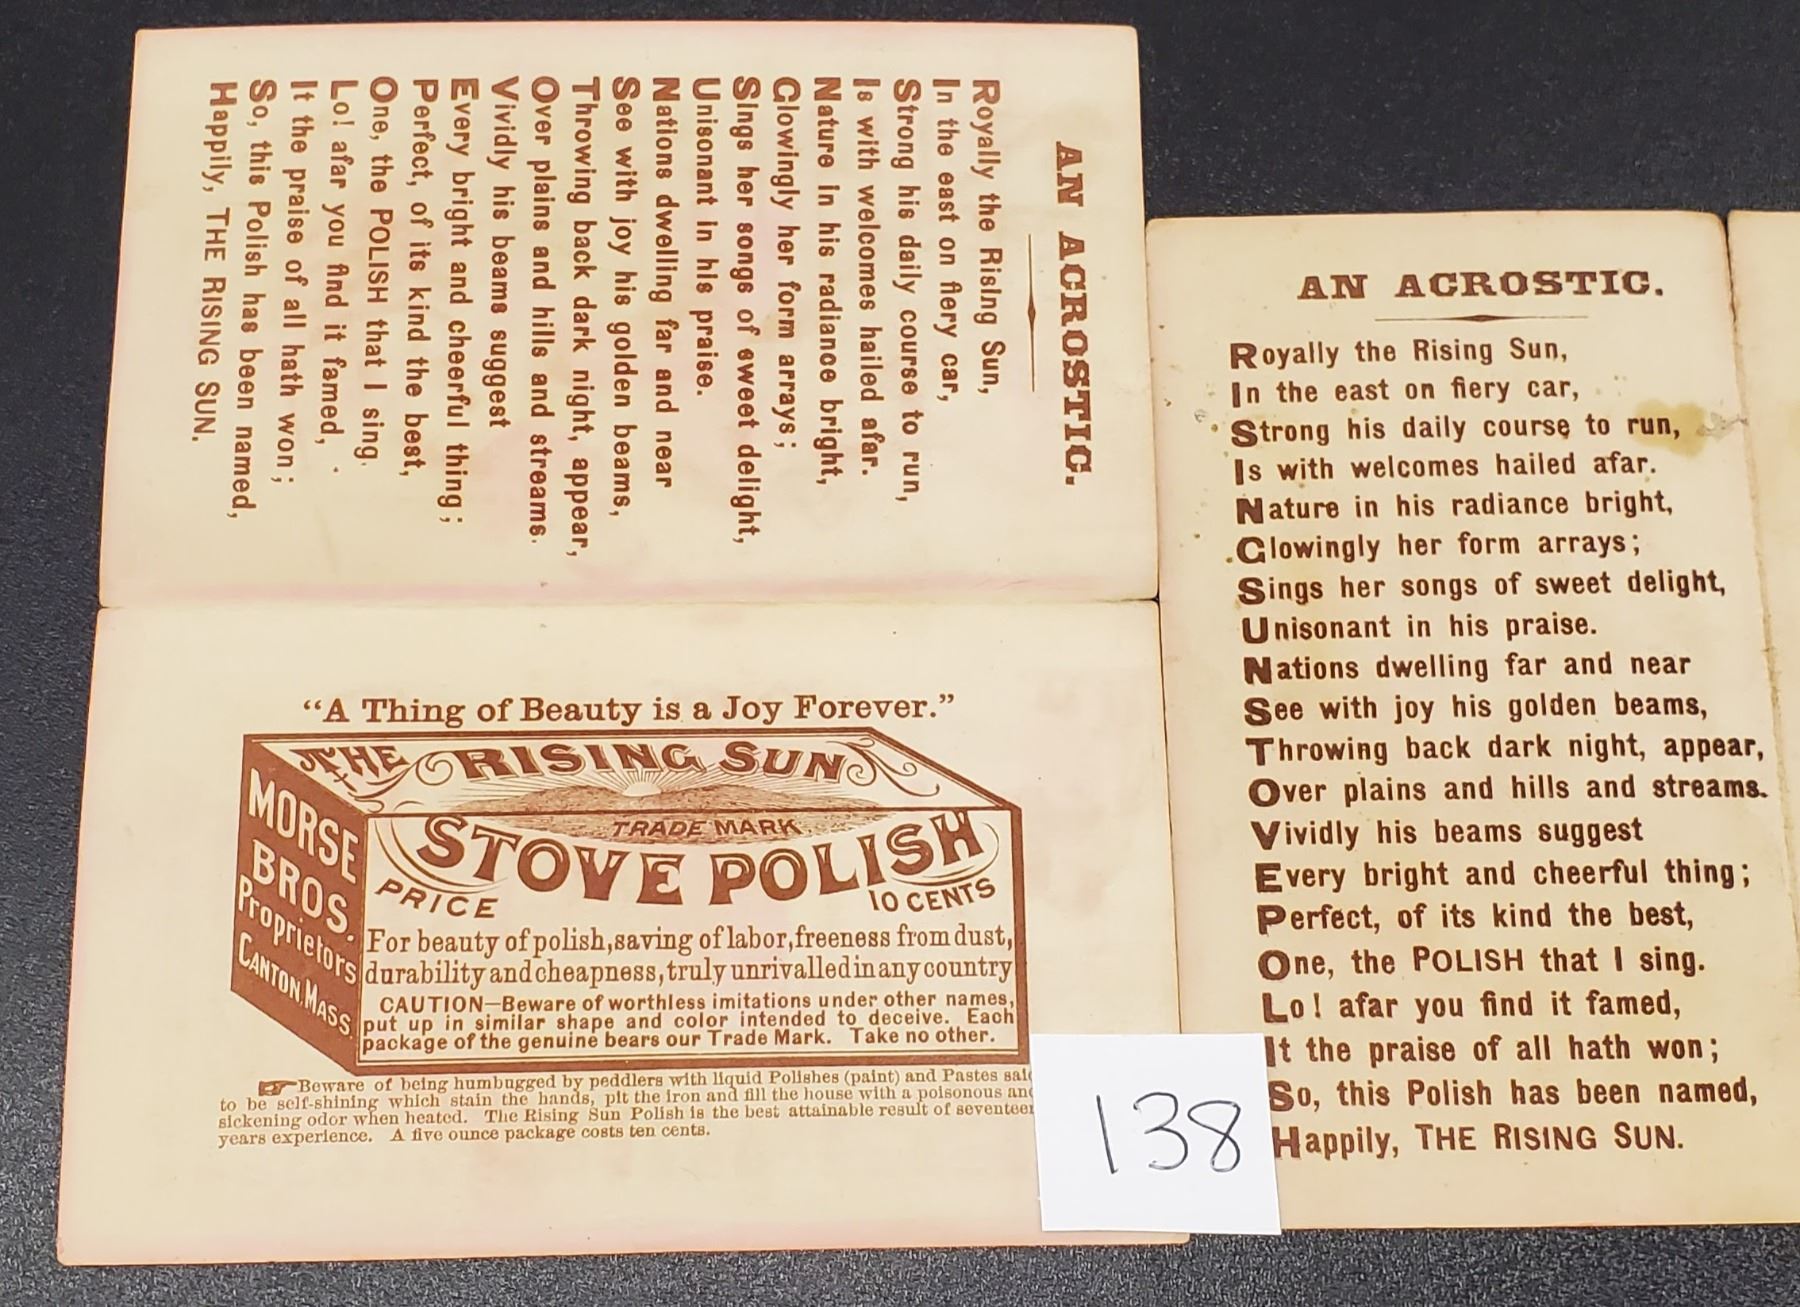 AN ACROSTIC.
Royally the Rising Sun,
In the east on fiery car,
Strong his daily course to run,
Is with welcomes hailed afar.
Nature in his radiance bright,
Glowingly her form arrays;
Sings her songs of sweet delight,
Unisonant in his praise.
Nations dwelling far and near
See with joy his golden beams,
Throwing back dark night, appear,
Over plains and hills and streams.
Vividly his beams suggest
Every bright and cheerful thing;
Perfect, of its kind the best,
One, the POLISH that I sing.
Lo! afar you find it famed,
It the praise of all hath won;
So, this Polish has been named,
Happily, THE RISING SUN.
"A Thing of Beauty is a Joy Forever."
THE RISING SUN
TRADE MARK
STOVE POLISH
PRICE 10 CENTS
MORSE
BROS.
Proprietors
CANTON, MASS.
For beauty of polish, saving of labor, freeness from dust,
durability and cheapness, truly unrivalled in any country
CAUTION—Beware of worthless imitations under other names,
put up in similar shape and color intended to deceive. Each
package of the genuine bears our Trade Mark. Take no other.
☞Beware of being humbugged by peddlers with liquid Polishes (paint) and Pastes
to be self-shining which stain the hands, pit the iron and fill the house with a poisonous
sickening odor when heated. The Rising Sun Polish is the best attainable result of
years experience. A five ounce package costs ten cents.
138
AN ACROSTIC.
Royally the Rising Sun,
In the east on fiery car,
Strong his daily course to run,
Is with welcomes hailed afar.
Nature in his radiance bright,
Glowingly her form arrays;
Sings her songs of sweet delight,
Unisonant in his praise.
Nations dwelling far and near
See with joy his golden beams,
Throwing back dark night, appear,
Over plains and hills and streams.
Vividly his beams suggest
Every bright and cheerful thing;
Perfect, of its kind the best,
One, the POLISH that I sing.
Lo! afar you find it famed,
It the praise of all hath won;
So, this Polish has been named,
Happily, THE RISING SUN.